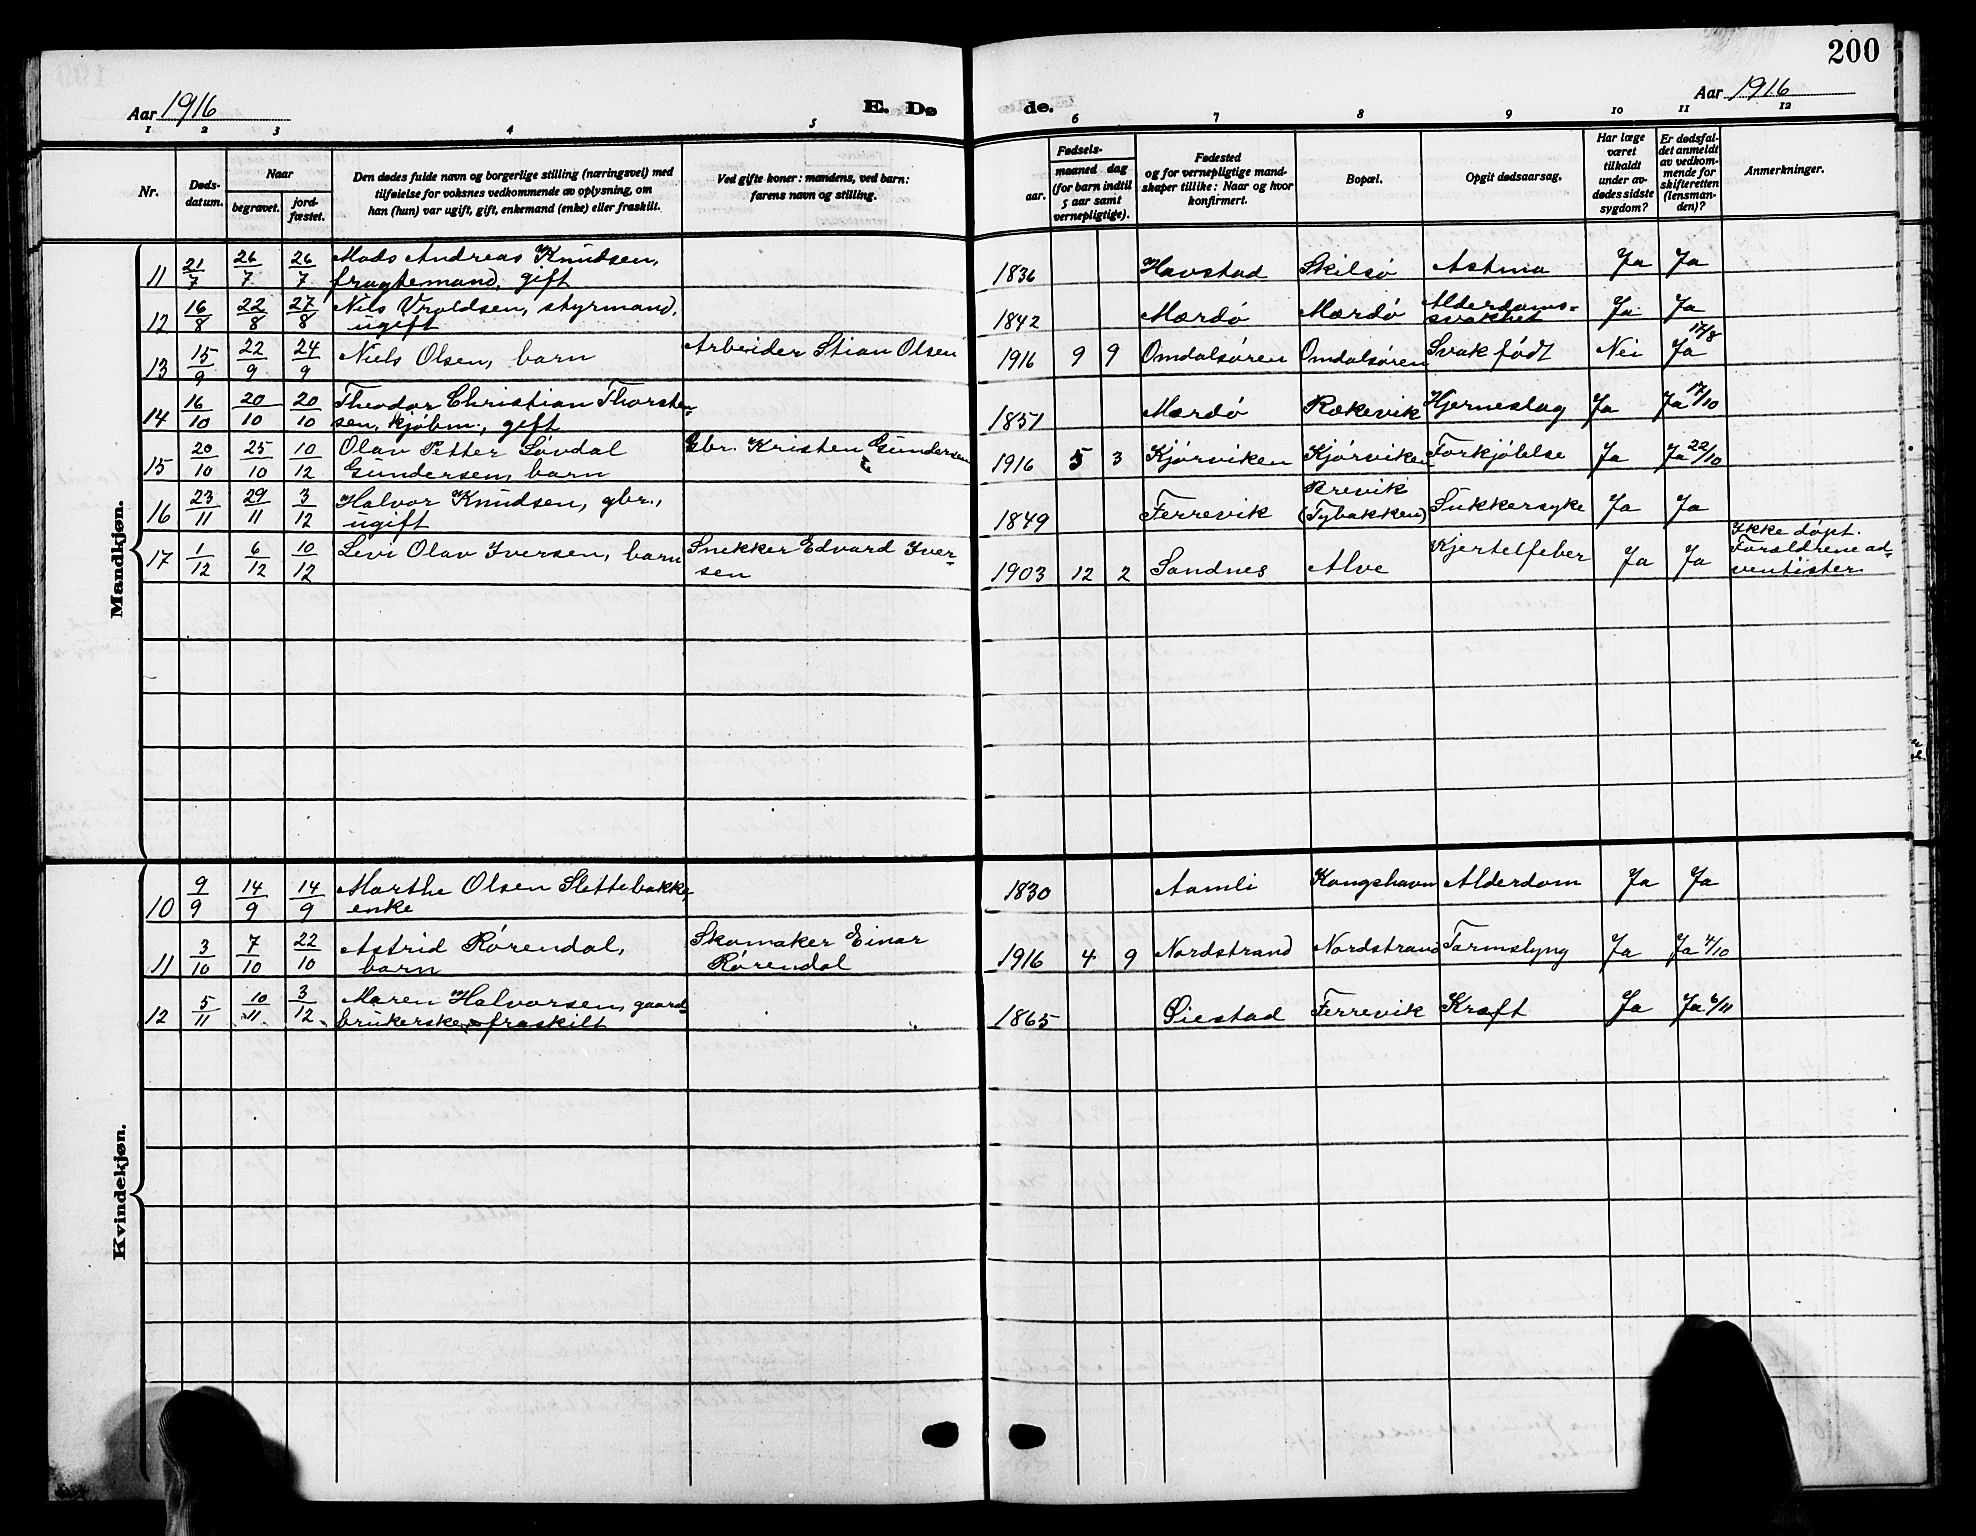 200
Aar 1916
E. Dø
de.
Aar 1916
1 2 3 4 5 6 7 8 9 10 11 12
Nr.
Døds-
datum.
Naar
begravet.
jord-
fæstet.
Den dødes fulde navn og borgerlige stilling (næringsvei) med
tilføielse for voksnes vedkommende av oplysning, om
han (hun) var ugift, gift, enkemand (enke) eller fraskilt.
Ved gifte koner: mandens, ved barn:
farens navn og stilling.
Fødsels-
aar.
maaned dag
(for barn indtil
5 aar samt
vernepligtige).
Fødested
og for vernepligtige mand-
skaper tillike: Naar og hvor
konfirmert.
Bopæl.
Opgit dødsaarsag.
Har læge
været
tilkaldt
under av-
dødes sidste
sygdom?
Er dødsfal-
det anmeldt
av vedkom-
mende for
skifteretten
(lensman-
den)?
Anmerkninger.
Mandkjøn.
11 21/7 26/7 26/7 Mads Andreas Knudsen,
fragtemand, gift
1836 Havstad Skilsø Astma Ja Ja
12 16/8 22/8 27/8 Nils Vroldsen, styrmand,
ugift
1842 Mærdø Mærdø Alderdoms-
svakhet Ja Ja
13 15/9 22/9 24/9 Niels Olsen, barn Arbeider Stian Olsen
1916 9 9 Omdalsøren Omdalsøren Svak født Nei Ja 17/8
14 16/10 20/10 20/10 Theodor Christian Thorsten-
sen, kjøbm., gift
1857 Mærdø Rækevik Hjerneslag Ja Ja 17/10
15 20/10 25/10 10/12 Olav Petter Løvdal
Gundersen, barn
Gbr. Kristen Gundersen
1916 5 3 Kjørviken Kjørviken Forkjølelse Ja Ja 22/10
16 23/11 29/11 3/12 Halvor Knudsen, gbr.,
ugift
1849 Færevik Brevik
(Tybakken) Sukkersyke Ja Ja
17 1/12 6/12 10/12 Levi Olav Iversen, barn Snekker Edvard Iver-
sen
1903 12 2 Sandnes Alve Kjertelfeber Ja Ja
Ikke døpt.
Forældrene ad-
ventister
Kvindekjøn.
10 9/9 14/9 14/9 Marthe Olsen Slettebakke,
enke
1830 Aamli Kongshavn Alderdom Ja Ja
11 3/10 7/10 22/10 Astrid Rørendal,
barn
Skomaker Einar
Rørendal
1916 4 9 Nordstrand Nordstrand Tarmslyng Ja Ja 4/10
12 5/11 10/11 3/12 Maren Halvorsen, gaard-
brukerske, fraskilt
1865 Øiestad Færevik Kræft Ja Ja 6/11